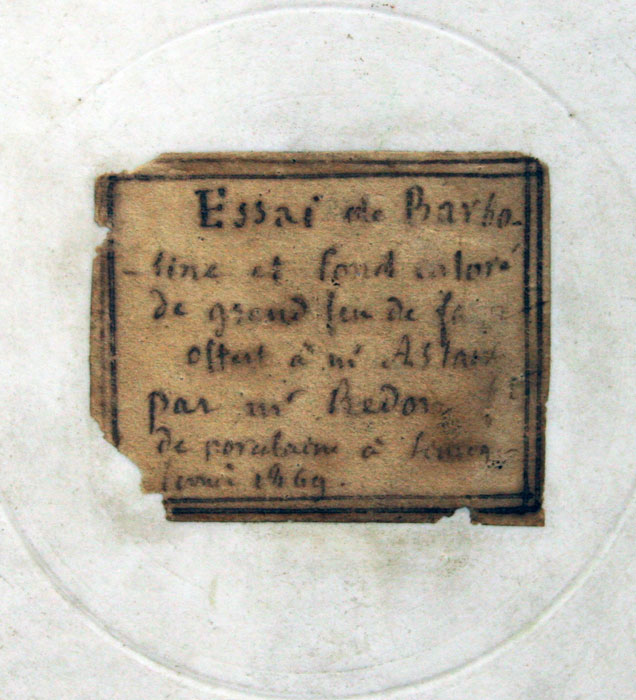 Essai de Barbo-
-tine et fond coloré
de grand feu de
offert à mr
par mr Redon
de porcelaine à
1869.